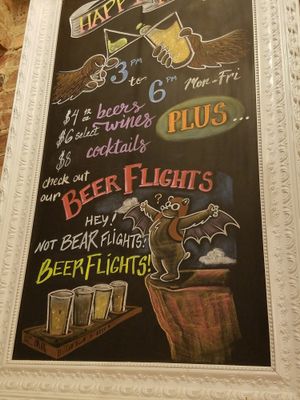 HAPPY
3 PM
to
6 PM
Mon-Fri
$4 beers
$6 select wines
$8 cocktails
PLUS...
check out
our BEER FLIGHTS
HEY!
NOT BEAR FLIGHTS!
BEER FLIGHTS!